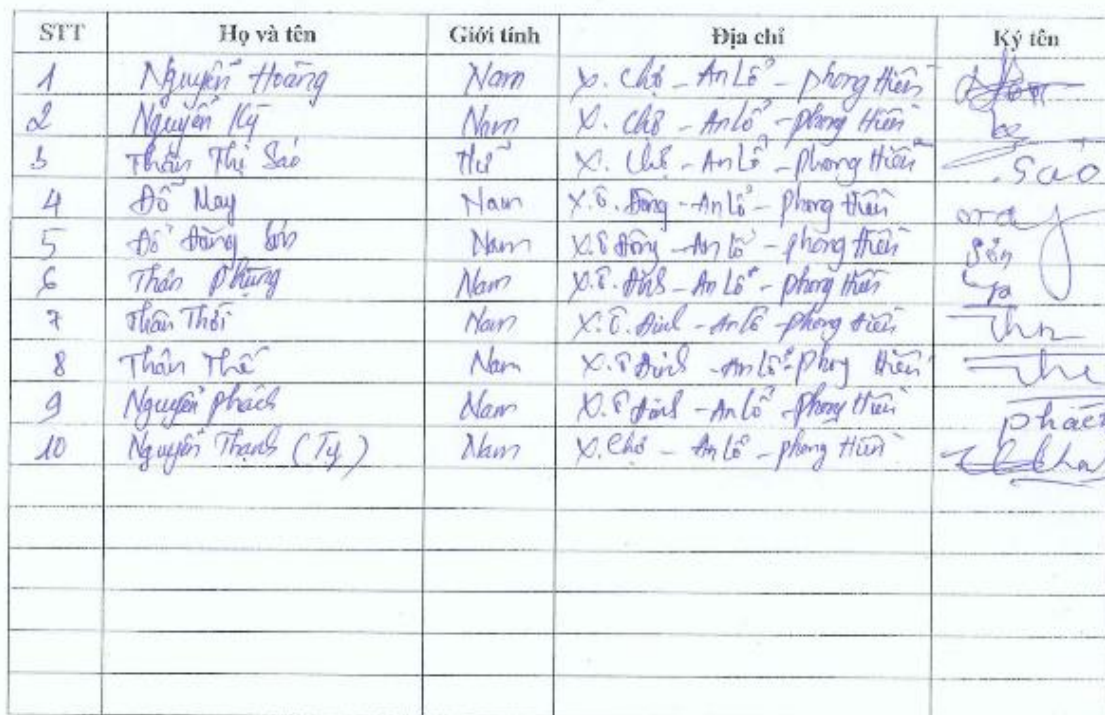 STT Họ và tên Giới tính Địa chỉ Ký tên
1 Nguyễn Hoàng Nam X. Chợ - An Lỗ - phong Hiền
2 Nguyễn Kỳ Nam X. Chợ - An Lỗ - phong Hiền
3 Thân Thị Sáo X. Chợ - An Lỗ - phong Hiền Sáo
4 Đỗ May Nam X. Đ. Đông - An Lỗ - phong Hiền
5 Đỗ Đăng Sơn Nam X. Đ Đông - An Lỗ - phong Hiền Sơn
6 Thân Phùng Nam X. Đ. Đình - An Lỗ - phong Hiền
7 Thân Thới Nam X. Đ. Đình - An Lỗ - phong Hiền
8 Thân Thế Nam X. Đ Đình - An Lỗ - Phong Hiền The
9 Nguyễn phách Nam X. Đ Đình - An Lỗ - phong Hiền phách
10 Nguyễn Thạnh (Tý) Nam X. Chợ - An Lỗ - phong Hiền